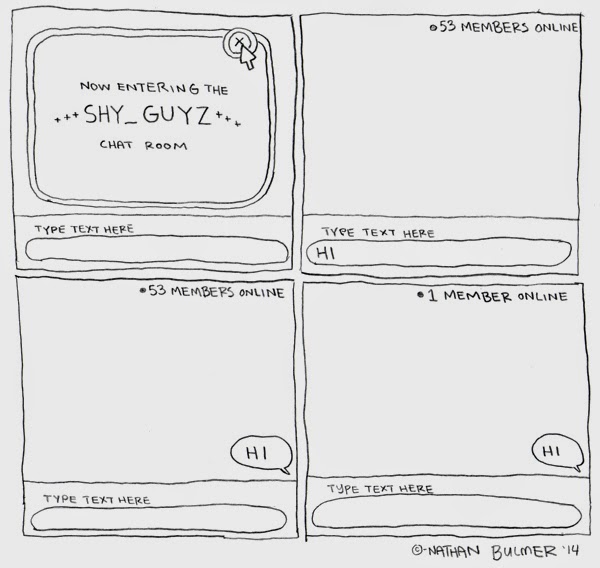 NOW ENTERING THE
+++ SHY_GUYZ +++
CHAT ROOM
TYPE TEXT HERE
53 MEMBERS ONLINE
TYPE TEXT HERE
HI
53 MEMBERS ONLINE
HI
TYPE TEXT HERE
1 MEMBER ONLINE
HI
TYPE TEXT HERE
© NATHAN BULMER '14